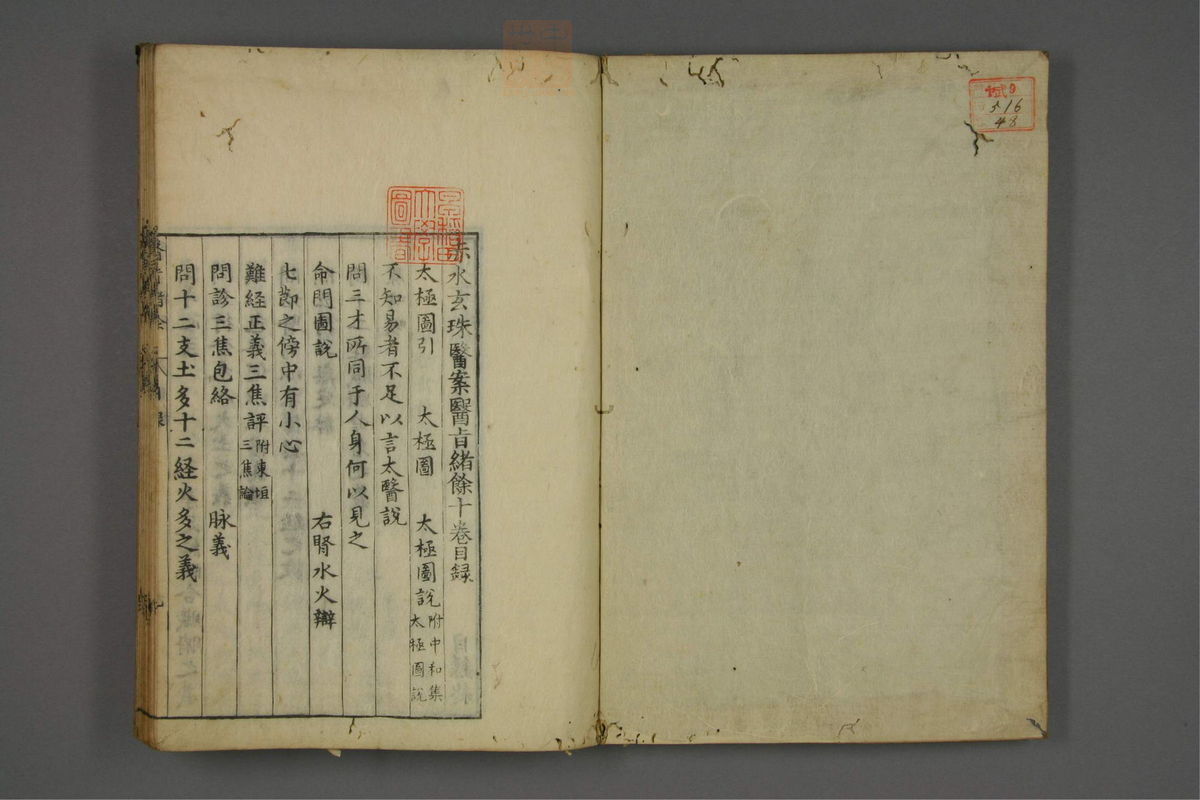 斌9
516
48
赤水玄珠醫案醫旨緒餘十巻目録
太極圖引　太極圖　太極圖説附中和集太極圖説
不知易者不足以言太醫説
問三才所同于人身何以見之
命門圖説　右腎水火辯
七節之傍中有小心
難経正義三焦評附東垣三焦論
問診三焦包絡　脉義
問十二支土多十二経火多之義